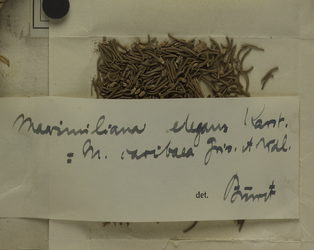 Maximiliana elegans Karst.
= M. caribaea Gris. et Wal.
det. Burret